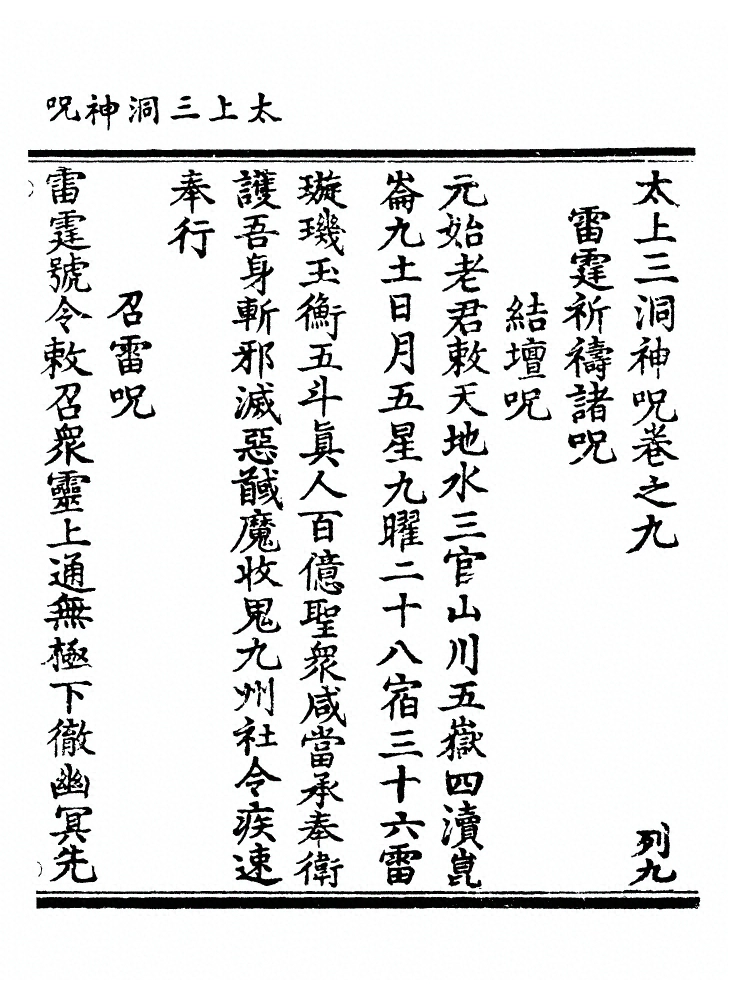 太上三洞神呪
太上三洞神呪卷之九　列九
雷霆祈禱諸呪
結壇呪
元始老君敕天地水三官山川五嶽四瀆崑
崙九土日月五星九曜二十八宿三十六雷
璇璣玉衡五斗眞人百億聖衆咸當承奉衛
護吾身斬邪滅惡馘魔收鬼九州社令疾速
奉行
召雷呪
雷霆號令敕召衆靈上通無極下徹幽冥先